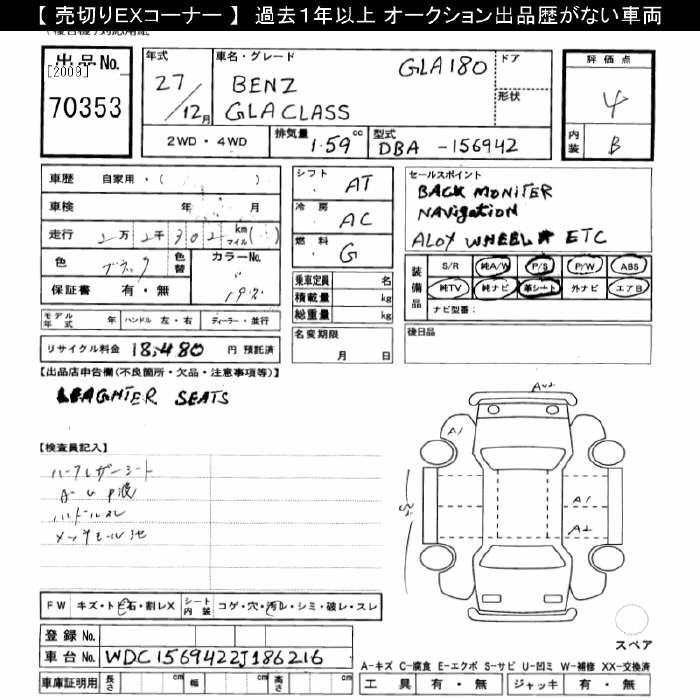 【 売切りEXコーナー 】 過去1年以上 オークション出品歴がない車両
出品No.
[2009]
70353
年式
27/12月
車名・グレード
BENZ
GLA CLASS
GLA180
ドア
形状
評価点
4
内装
B
2WD・4WD
排気量
1.59 cc
型式
DBA -156942
車歴 自家用・( )
車検 年 月
走行 2万 2千 302 km マイル( )
色 ブラック
色替
カラーNo.
192
保証書 有・無
シフト AT
冷房 AC
燃料 G
乗車定員 名
積載量 kg
総重量 kg
セールスポイント
BACK MONITER
NAVIGATION
ALOY WHEEL ETC
装備品
S/R 純A/W P/S P/W ABS
純TV 純ナビ 革シート 外ナビ エアB
ナビ型番:
モデル年式 年 ハンドル 左・右 ディーラー・並行
名変期限
月 日
後日品
リサイクル料金 18,480 円 預託済
【出品店申告欄(不良箇所・欠品・注意事項等)】
LEAGHTER SEATS
【検査員記入】
ハーフレザーシート
A1
A1
A2
FW キズ・ト ビ石・割レX シート内装 コゲ・穴・汚レ・シミ・破レ・スレ
登録No.
車台No. WDC1569422J186216
スペア
A-キズ C-腐食 E-エクボ S-サビ U-凹ミ W-補修 XX-交換済
車庫証明用 長さ cm 幅 cm 高さ cm
工具 有・無 ジャッキ 有・無